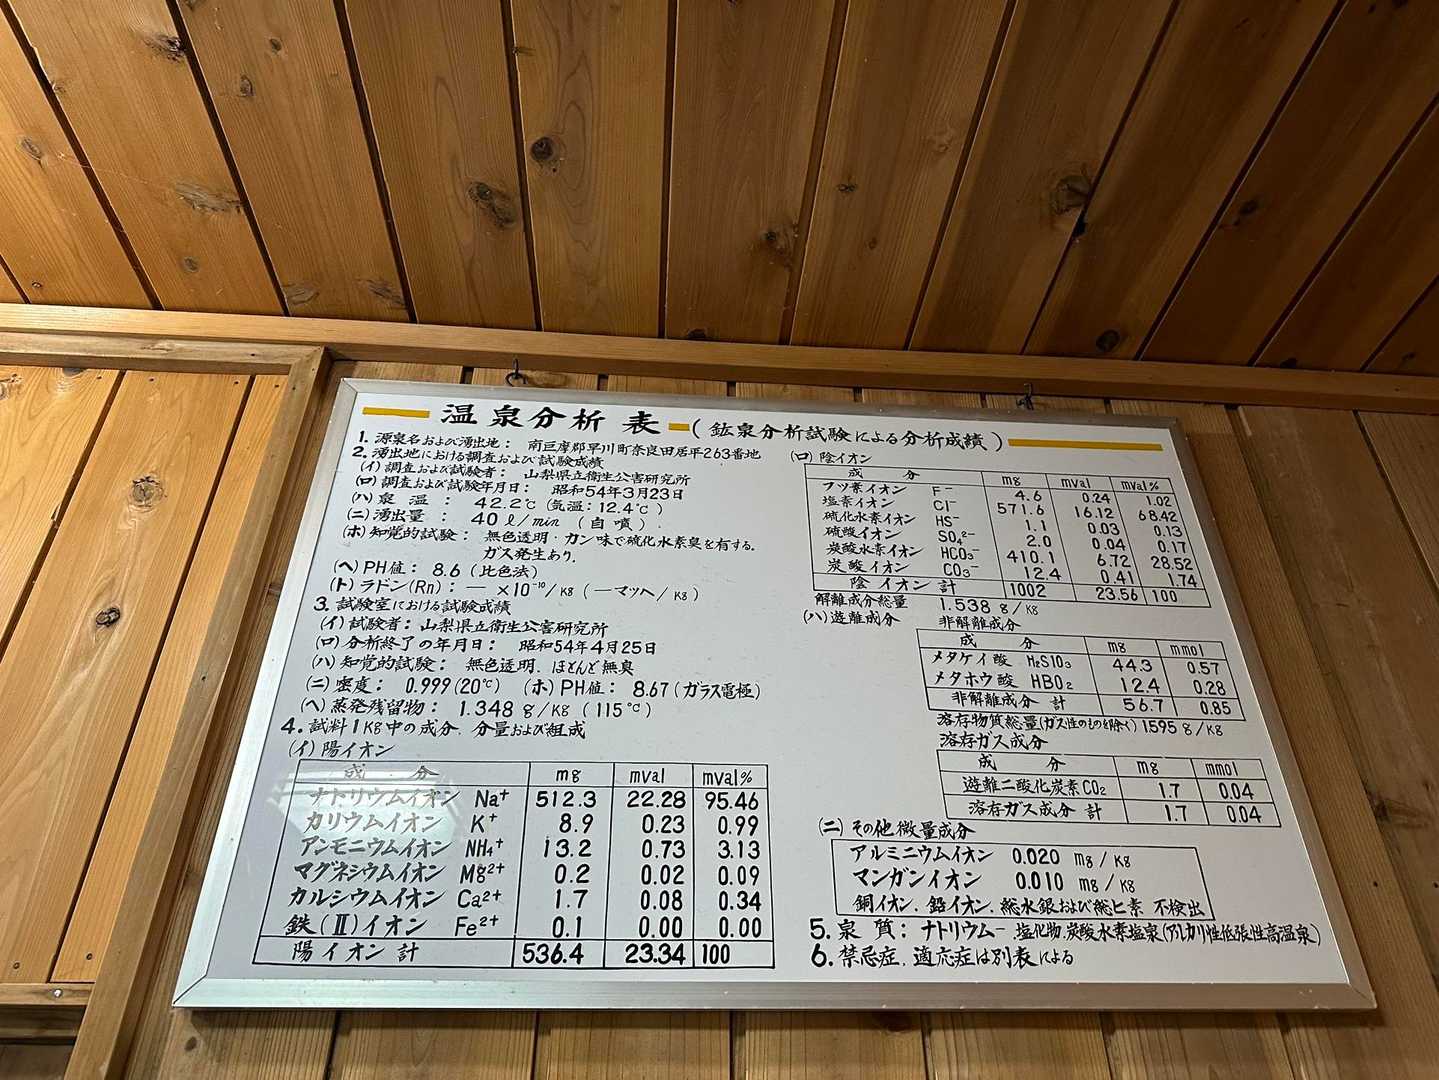 温泉分析表(鉱泉分析試験による分析成績)
1. 源泉名および湧出地: 南巨摩郡早川町奈良田居平263番地
2. 湧出地における調査および試験成績
(イ)調査および試験者: 山梨県立衛生公害研究所
(ロ)調査および試験年月日: 昭和54年3月23日
(ハ)泉 温: 42.2℃(気温:12.4℃)
(ニ)湧出量: 40 ℓ/min (自噴)
(ホ)知覚的試験: 無色透明・カン味で硫化水素臭を有する.
ガス発生あり.
(ヘ)PH値: 8.6(比色法)
(ト)ラドン(Rn): ×10⁻¹⁰/Kg(ーマッヘ/Kg)
3. 試験室における試験成績
(イ)試験者: 山梨県立衛生公害研究所
(ロ)分析終了の年月日: 昭和54年4月25日
(ハ)知覚的試験: 無色透明、ほとんど無臭
(ニ)密度: 0.999(20℃) (ホ)PH値: 8.67(ガラス電極)
(ヘ)蒸発残留物: 1.348 g/Kg (115℃)
4. 試料1Kg中の成分、分量および組成
(イ)陽イオン
成 分 mg mval mval%
ナトリウムイオン Na⁺ 512.3 22.28 95.46
カリウムイオン K⁺ 8.9 0.23 0.99
アンモニウムイオン NH₄⁺ 13.2 0.73 3.13
マグネシウムイオン Mg²⁺ 0.2 0.02 0.09
カルシウムイオン Ca²⁺ 1.7 0.08 0.34
鉄(Ⅱ)イオン Fe²⁺ 0.1 0.00 0.00
陽イオン計 536.4 23.34 100
(ロ)陰イオン
成 分 mg mval mval%
フッ素イオン F⁻ 4.6 0.24 1.02
塩素イオン Cl⁻ 571.6 16.12 68.42
硫化水素イオン HS⁻ 1.1 0.03 0.13
硫酸イオン SO₄²⁻ 2.0 0.04 0.17
炭酸水素イオン HCO₃⁻ 410.1 6.72 28.52
炭酸イオン CO₃⁻ 12.4 0.41 1.74
陰イオン計 1002 23.56 100
解離成分総量 1.538 g/Kg
(ハ)遊離成分 非解離成分
成 分 mg mmol
メタケイ酸 H₂SiO₃ 44.3 0.57
メタホウ酸 HBO₂ 12.4 0.28
非解離成分 計 56.7 0.85
溶存物質総量(ガス性のものを除く) 1.595 g/Kg
溶存ガス成分
成 分 mg mmol
遊離二酸化炭素CO₂ 1.7 0.04
溶存ガス成分 計 1.7 0.04
(ニ)その他微量成分
アルミニウムイオン 0.020 mg/Kg
マンガンイオン 0.010 mg/Kg
銅イオン、鉛イオン、総水銀および総ヒ素 不検出
5. 泉 質: ナトリウムー 塩化物炭酸水素塩泉(アルカリ性低張性高温泉)
6. 禁忌症、適応症は別表による